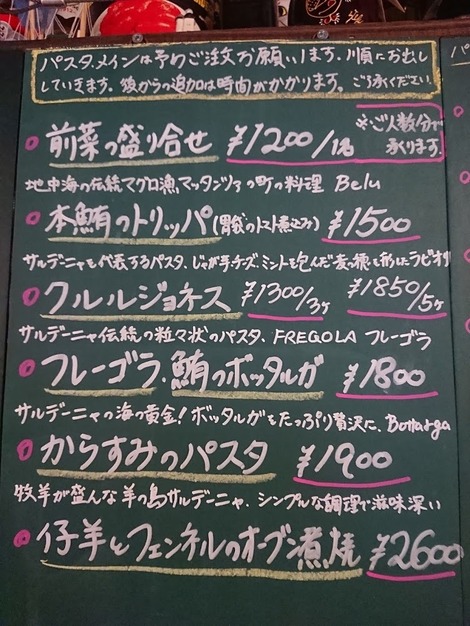 パスタ、メインは予めご注文お願いします。順にお出し
していきます。後からの追加は時間がかかります。ご了承ください。
前菜の盛り合せ ¥1200/1名
※ご人数分で
承ります
地中海の伝統マグロ漁、マッタンツァの町の料理 Belu
本鮪のトリッパ(胃袋のトマト煮込み) ¥1500
サルデーニャを代表するパスタ、じゃが芋、チーズ、ミントを包んだ麦の穂を形にラビオリ
クルルジョネース ¥1300/3ヶ ¥1850/5ヶ
サルデーニャ伝統の粒々状のパスタ、FREGOLA フレーゴラ
フレーゴラ、鮪のボッタルガ ¥1800
サルデーニャの海の黄金!ボッタルガをたっぷり贅沢に、Bottarga
からすみのパスタ ¥1900
牧羊が盛んな羊の島サルデーニャ、シンプルな調理で滋味深い
仔羊とフェンネルのオーブン煮焼 ¥2600
パ